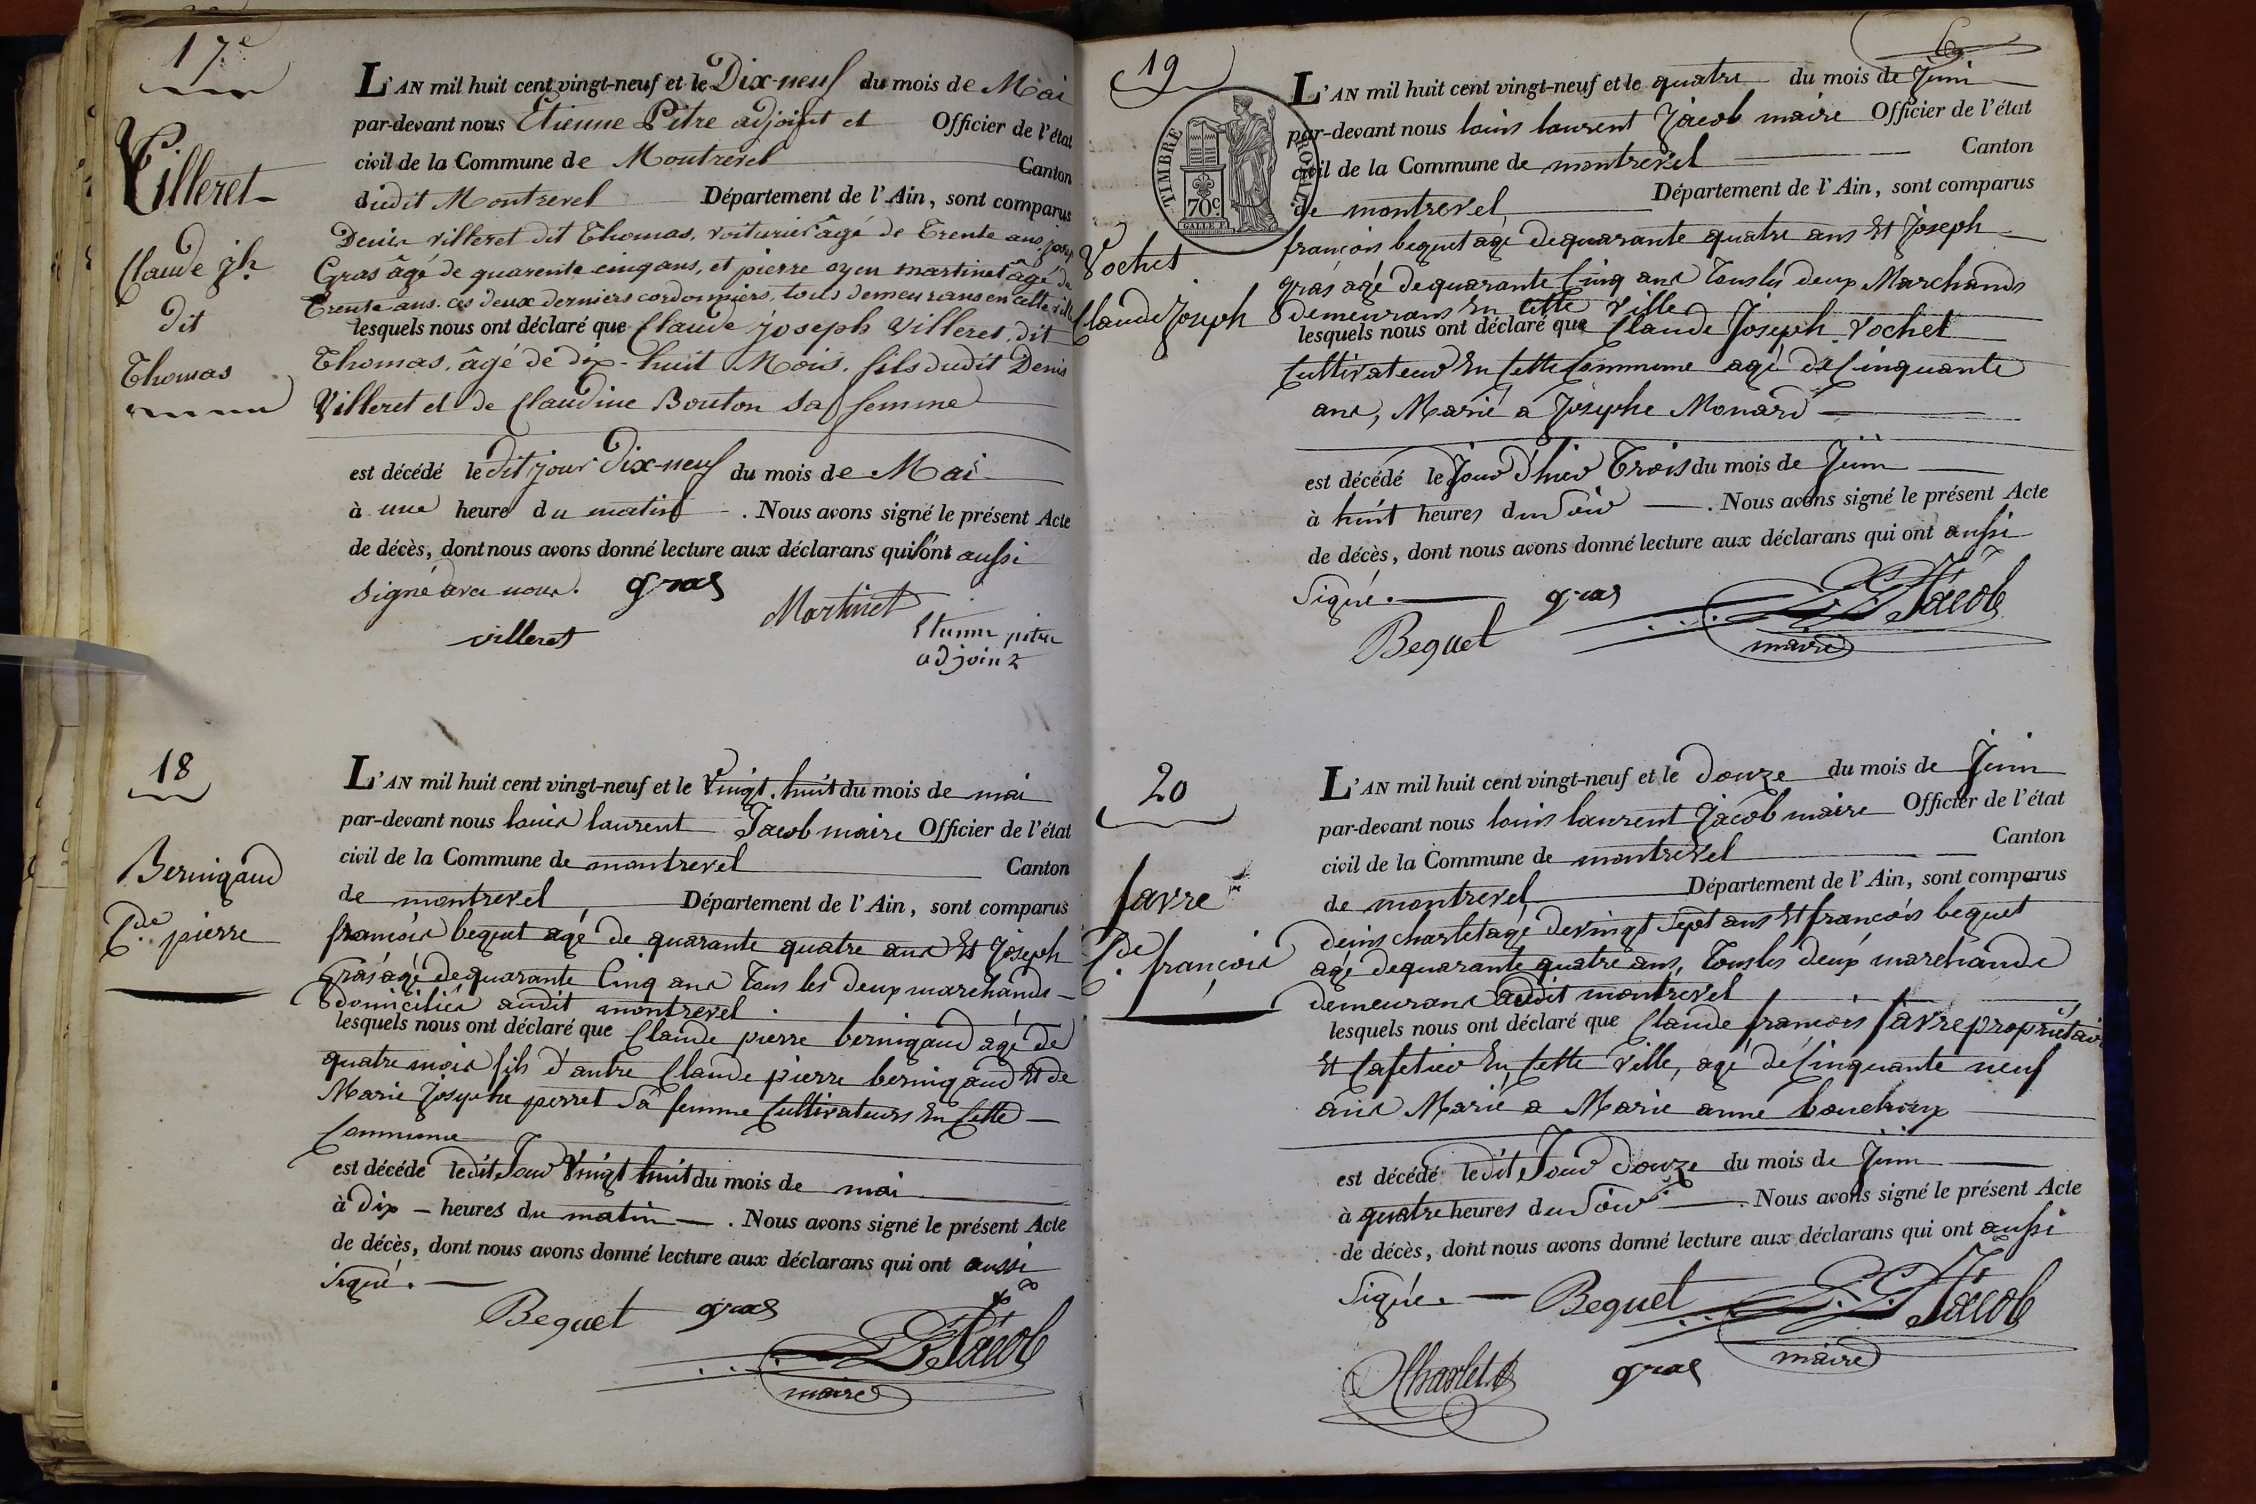 17e
Villeret
Claude jh.
dit
Thomas
L'AN mil huit cent vingt-neuf et le Dix-neuf du mois de Mai
par-devant nous Etienne Pitre adjoint et Officier de l'état
civil de la Commune de Montrevel Canton
dudit Montrevel Département de l'Ain, sont comparus
Denis Villeret dit Thomas, voiturier âgé de Trente ans, joseph
Gras âgé de quarente cinq ans, et pierre oyen martinet âgé de
Trente ans. ces deux derniers cordonniers, tous demeurans en cette ville
lesquels nous ont déclaré que Claude joseph Villeret, dit
Thomas, âgé de dix-huit Mois, fils dudit Denis
Villeret et de Claudine Bouton sa femme
est décédé le dit jour Dix-neuf du mois de Mai
à une heure du matin. Nous avons signé le présent Acte
de décès, dont nous avons donné lecture aux déclarans qui ont aussi
signé avec nous. gras
Martinet
villeret
Etienne pitre
adjoint
18
Bernigaud
Cde. pierre
L'AN mil huit cent vingt-neuf et le Vingt. huit du mois de mai
par-devant nous louis laurent Jacob maire Officier de l'état
civil de la Commune de montrevel Canton
de montrevel, Département de l'Ain, sont comparus
francois bequet agé de quarante quatre ans Et Joseph
gras agé de quarante Cinq ans Tous les deux marchands
domiciliés audit montrevel.
lesquels nous ont déclaré que Claude pierre bernigaud agé de
quatre mois fils d'autre Claude pierre bernigaud Et de
Marie Josephe perret Sa femme Cultivateurs En Cette
Commune
est décédé ledit Jour Vingt huit du mois de mai
à dix heures du matin. Nous avons signé le présent Acte
de décès, dont nous avons donné lecture aux déclarans qui ont aussi
Signé.
Bequet gras
L. L. Jacob
maire
6
19
TIMBRE ROYAL
70c.
Vochet
Claude Joseph
L'AN mil huit cent vingt-neuf et le quatre du mois de Juin
par-devant nous louis laurent Jacob maire Officier de l'état
civil de la Commune de montrevel Canton
de montrevel Département de l'Ain, sont comparus
francois bequet agé de quarante quatre ans Et Joseph
gras agé de quarante Cinq ans Tous les deux Marchands
demeurans En cette Ville
lesquels nous ont déclaré que Claude Joseph Vochet
Cultivateur En Cette Commune agé de Cinquante
ans, Marié a Josephe Monard
est décédé le Jour d'hier Trois du mois de Juin
à huit heures du Soir. Nous avons signé le présent Acte
de décès, dont nous avons donné lecture aux déclarans qui ont aussi
Signé. gras
L. L. Jacob
Bequet
maire
20
favre
Cde. françois
L'AN mil huit cent vingt-neuf et le douze du mois de Juin
par-devant nous louis laurent Jacob maire Officier de l'état
civil de la Commune de montrevel Canton
de montrevel Département de l'Ain, sont comparus
denis charlet agé de vingt Sept ans Et francois bequet
agé de quarante quatre ans, Tous les deux marchands
demeurans audit montrevel
lesquels nous ont déclaré que Claude francois favre propriétaire
Et Cafetier En Cette Ville, agé de Cinquante neuf
ans Marié a Marie anne
est décédé ledit Jour douze du mois de Juin
à quatre heures du Soir. Nous avons signé le présent Acte
de décès, dont nous avons donné lecture aux déclarans qui ont aussi
Signé. Bequet L. L. Jacob
maire
Charlet gras